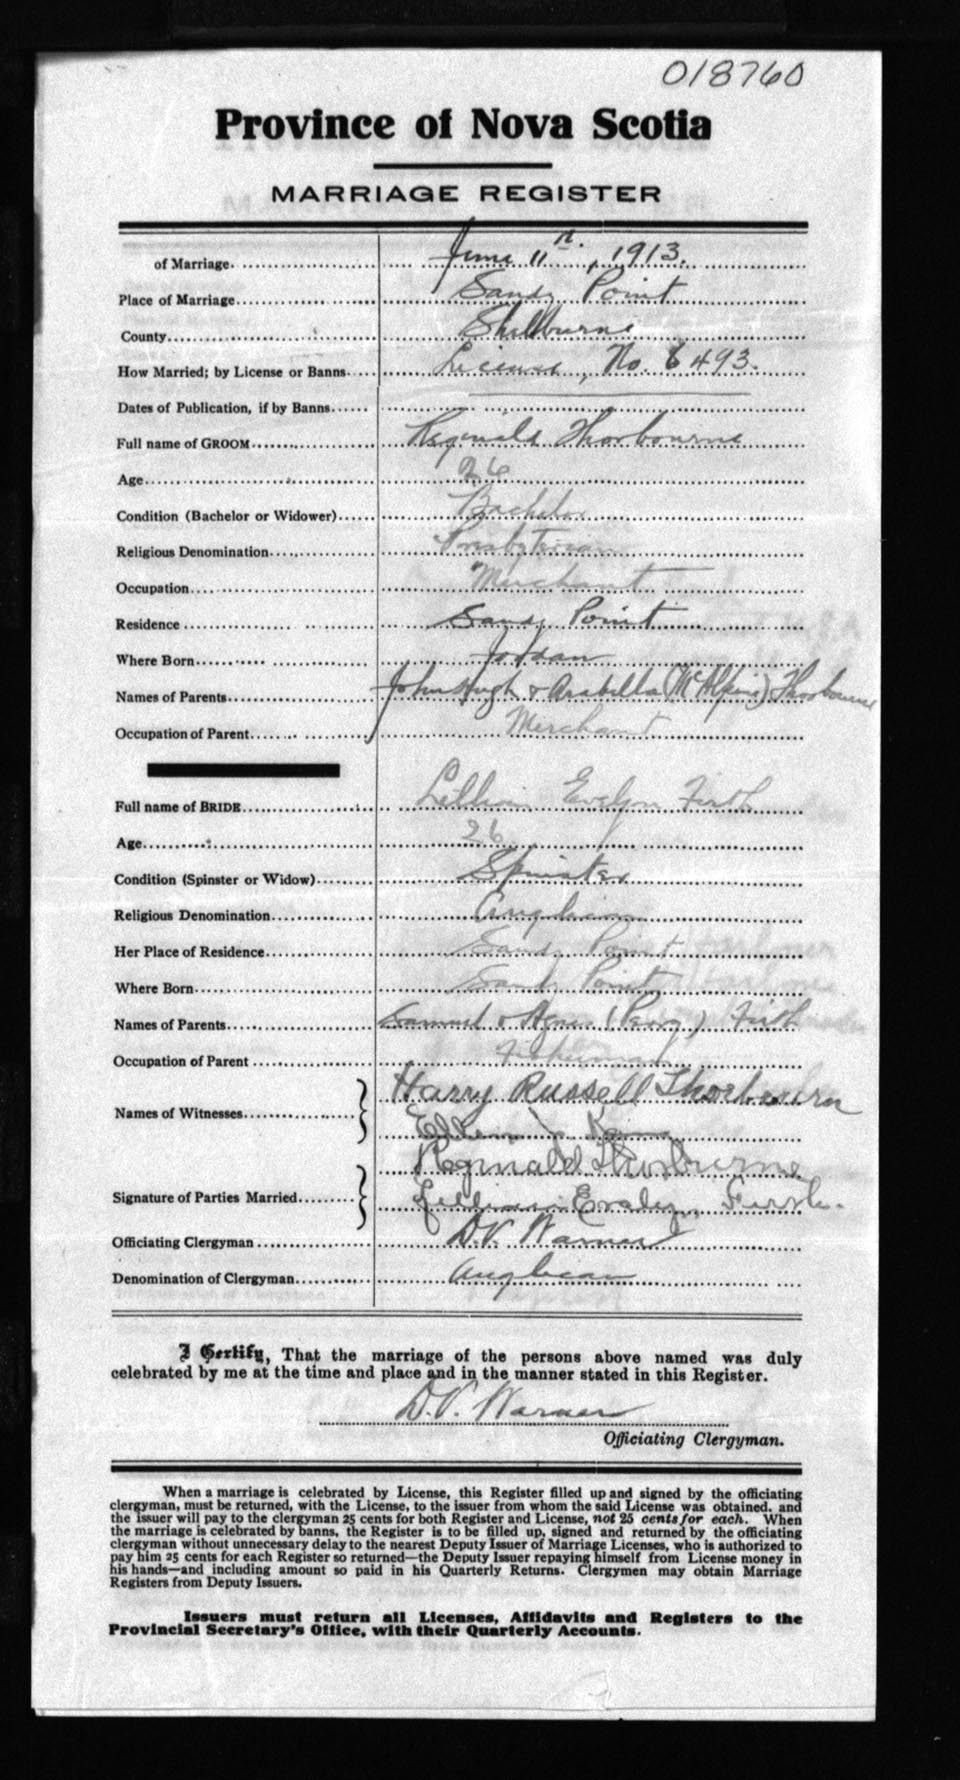 018760
Province of Nova Scotia
MARRIAGE REGISTER
of Marriage. June 11th, 1913.
Place of Marriage Sandy Point
County Shelburne
How Married; by License or Banns License, No. 6493.
Dates of Publication, if by Banns
Full name of GROOM Reginald Thorbourne
Age 26
Condition (Bachelor or Widower) Bachelor
Religious Denomination Presbyterian
Occupation Merchant
Residence Sandy Point
Where Born Jordan
Names of Parents John Hugh & Arabella (McAlpine) Thorbourne
Occupation of Parent Merchant
Full name of BRIDE Lillian Evelyn Firth
Age 26
Condition (Spinster or Widow) Spinster
Religious Denomination Anglican
Her Place of Residence Sandy Point
Where Born Sandy Point
Names of Parents Samuel & Agnes (Perry) Firth
Occupation of Parent Fisherman
Names of Witnesses Harry Russell Thorbourn
Signature of Parties Married Reginald Thorburne
Lillian Evalyn Firth.
Officiating Clergyman D.V. Warner
Denomination of Clergyman Anglican
I Certify, That the marriage of the persons above named was duly
celebrated by me at the time and place and in the manner stated in this Register.
D.V. Warner
Officiating Clergyman.
When a marriage is celebrated by License, this Register filled up and signed by the officiating
clergyman, must be returned, with the License, to the issuer from whom the said License was obtained, and
the issuer will pay to the clergyman 25 cents for both Register and License, not 25 cents for each. When
the marriage is celebrated by banns, the Register is to be filled up, signed and returned by the officiating
clergyman without unnecessary delay to the nearest Deputy Issuer of Marriage Licenses, who is authorized to
pay him 25 cents for each Register so returned—the Deputy Issuer repaying himself from License money in
his hands—and including amount so paid in his Quarterly Returns. Clergymen may obtain Marriage
Registers from Deputy Issuers.
Issuers must return all Licenses, Affidavits and Registers to the
Provincial Secretary's Office, with their Quarterly Accounts.